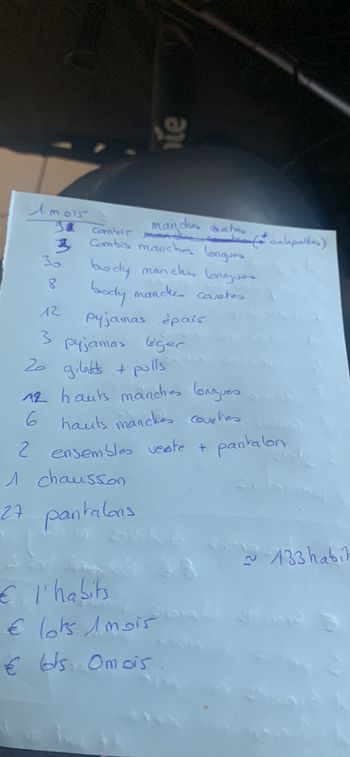 1 mois
combis manches courtes (+ salopettes)
3 Combis manches longues
30 body manches longues
8 body manches courtes
12 pyjamas épais
3 pyjamas léger
20 gilets + pulls
12 hauts manches longues
6 hauts manches courtes
2 ensembles veste + pantalon
1 chausson
27 pantalons
≈ 133 habit
€ l'habits
€ lots 1 mois
€ lots 0 mois.